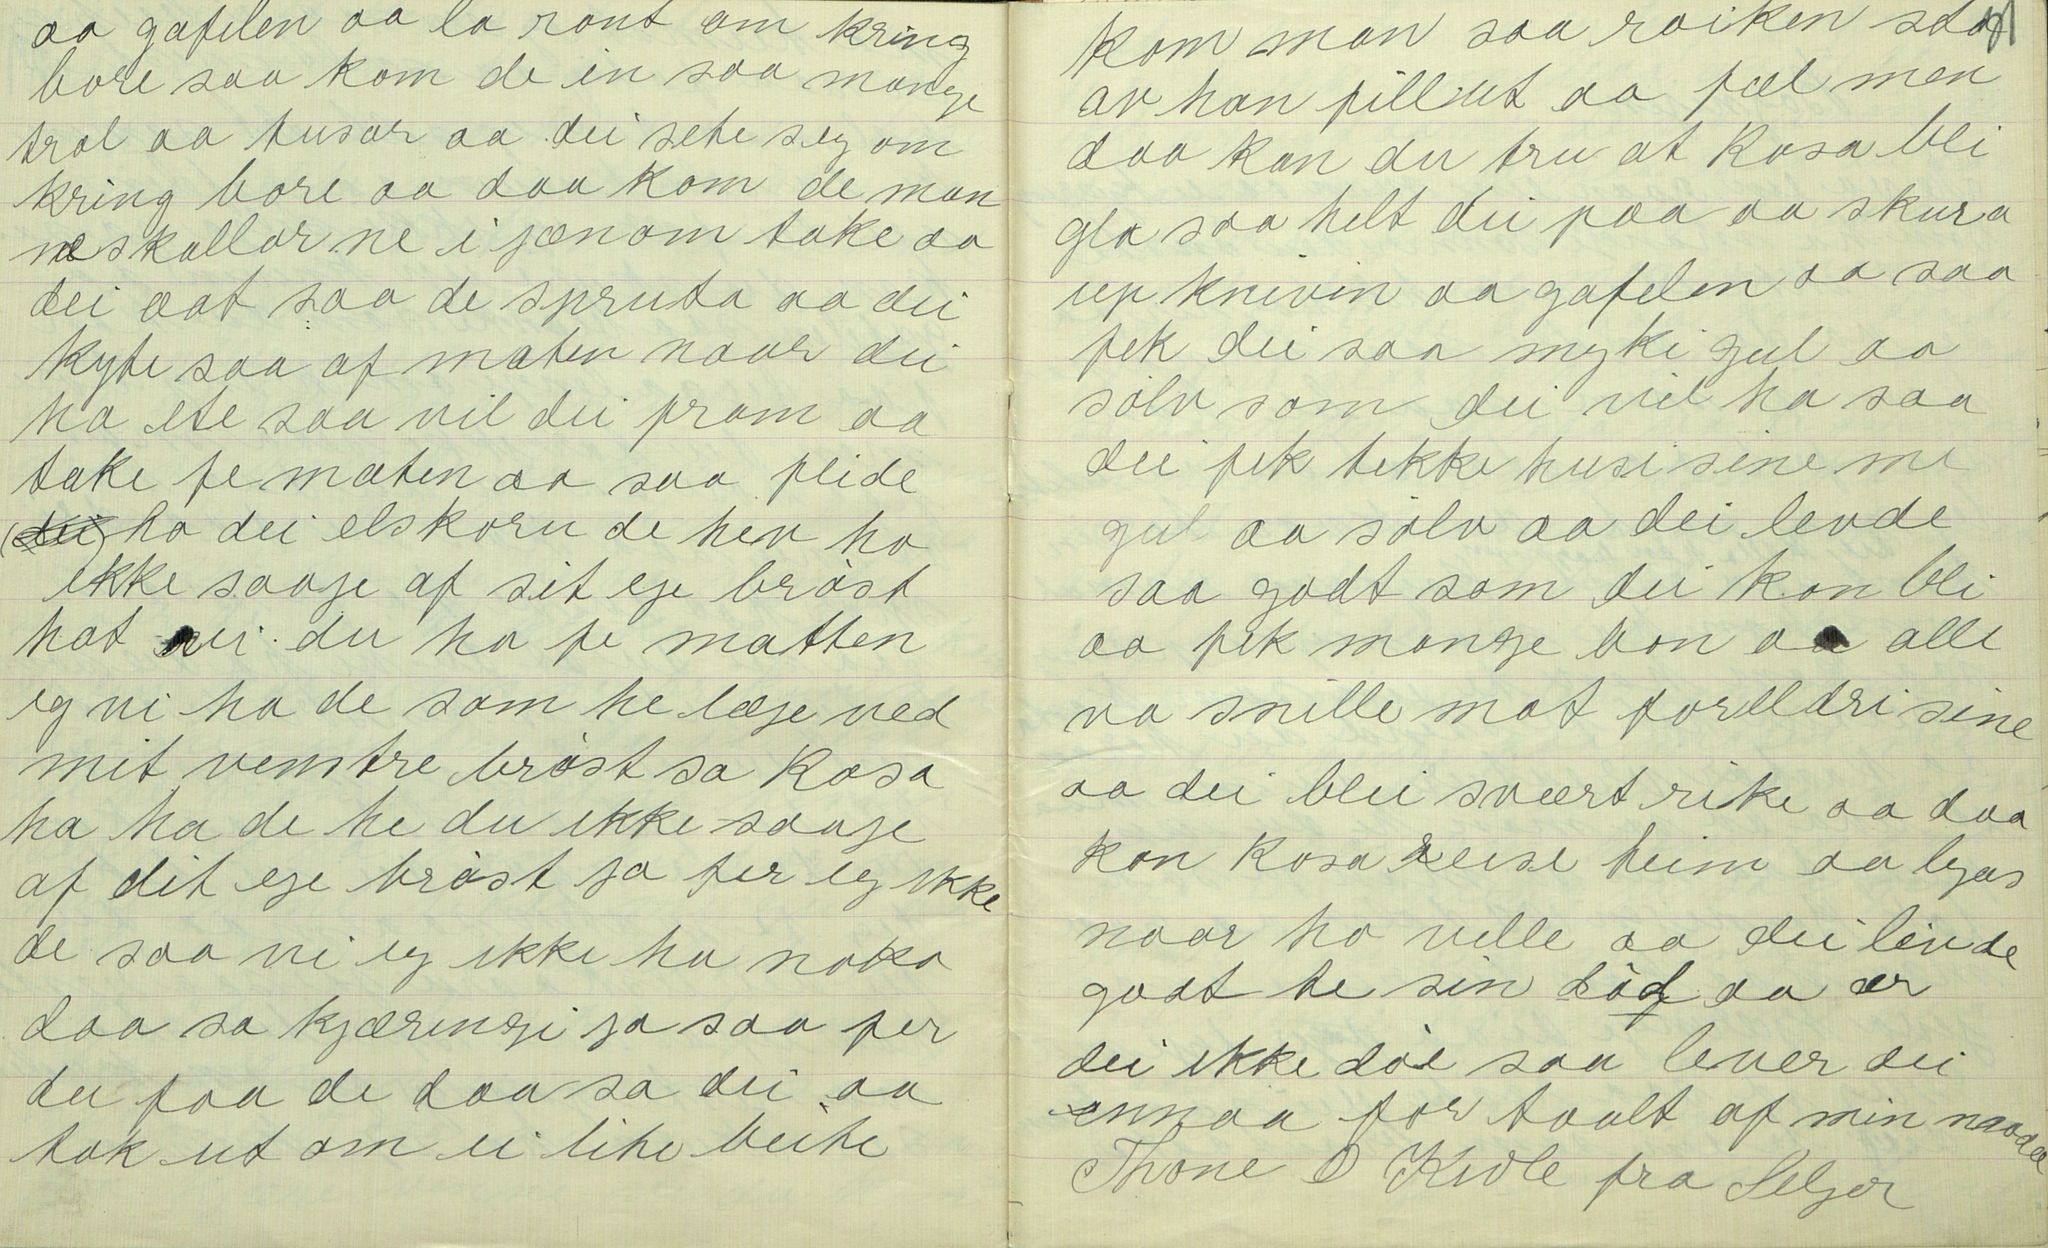 aa gafelen aa la ront om kring
bore saa kom de in saa mange
trol aa tusar aa dei sete seg om
kring bore aa daa kom de man
neskallar ne i jænom take aa
dei aat saa de spruta aa dei
kyte saa af maten naar dei
ha ete saa vil dei fram aa
take fe maten aa saa pleide
(dei) ha dei elskoru de hev ho
ikke saage af sit ege bröst
hat vei du ha fe matten
eg vi ha de som he læge ved
mit vemstre bröst sa Kosa
ha ha de he du ikke saage
af dit ege bröst ja fer eg ikke
de saa vi eg ikke ha noko
daa sa kjæringi ja saa fer
du faa de daa sa dei aa
tok ut om ei lite beite
kom man saa roiken stod
av han fillut aa fæl men
daa kan du tru at Kosa blei
gla saa helt dei paa aa skura
up knivin aa gafelen aa saa
fek dei saa myki gul aa
sölv som dei vil ha saa
dei fek tekke husi sine me
gul aa sölv aa dei levde
saa godt som dei kan bli
aa fek mange bon aa alle
va snille mot forelldri sine
aa dei blei svært rike aa daa
kon Kosa reise heim aa lyas
naar ho ville aa dei levde
godt te sin död aa ær
dei ikke döe saa lever dei
ennaa for taalt af min
Thone O Kivle fra Seljor